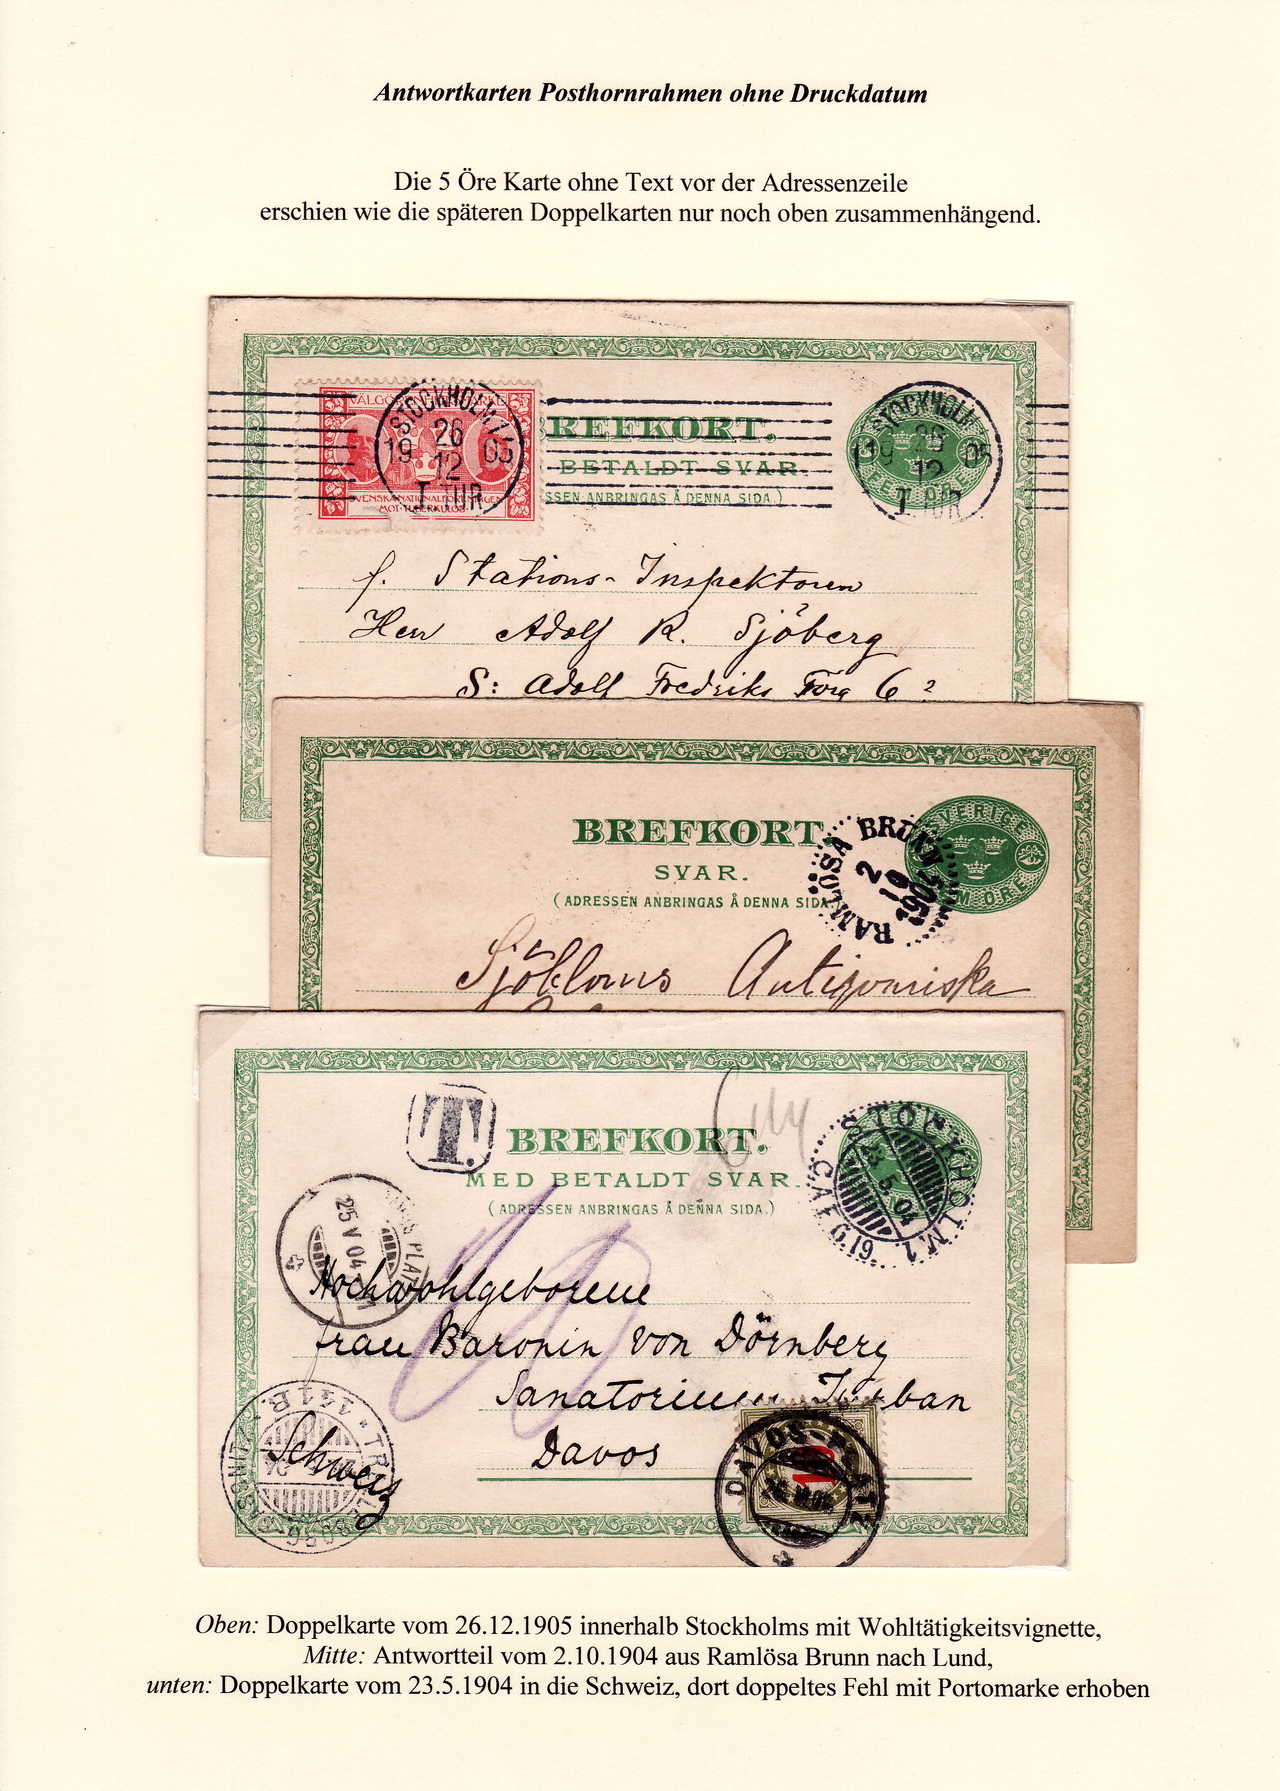 Antwortkarten Posthornrahmen ohne Druckdatum
Die 5 Öre Karte ohne Text vor der Adressenzeile
erschien wie die späteren Doppelkarten nur noch oben zusammenhängend.
STOCKHOLM 1
26
19 05
12
1 TUR
SVENSKA NATIONALFÖRENINGEN
MOT TUBERKULOS
BREFKORT.
BETALDT SVAR.
SSEN ANBRINGAS Å DENNA SIDA.)
STOCKHOLM
19 05
12
Stations-Inspektoren
Herr Adolf R. Sjöberg
S: Adolf Fredriks Torg 6
BREFKORT
SVAR.
(ADRESSEN ANBRINGAS Å DENNA SIDA.
RAMLÖSA BRUNN
2
10
SVERIGE
FEM ÖRE
Sjöbloms
T.
BREFKORT.
MED BETALDT SVAR.
(ADRESSEN ANBRINGAS Å DENNA SIDA.)
STOCKHOLM 1.
23 5 04
25 V 04
Hochwohlgeborene
Frau Baronin von Dörnberg
Sanatorium Turban
Davos
Schweiz
DAVOS PLATZ
10
Oben: Doppelkarte vom 26.12.1905 innerhalb Stockholms mit Wohltätigkeitsvignette,
Mitte: Antwortteil vom 2.10.1904 aus Ramlösa Brunn nach Lund,
unten: Doppelkarte vom 23.5.1904 in die Schweiz, dort doppeltes Fehl mit Portomarke erhoben